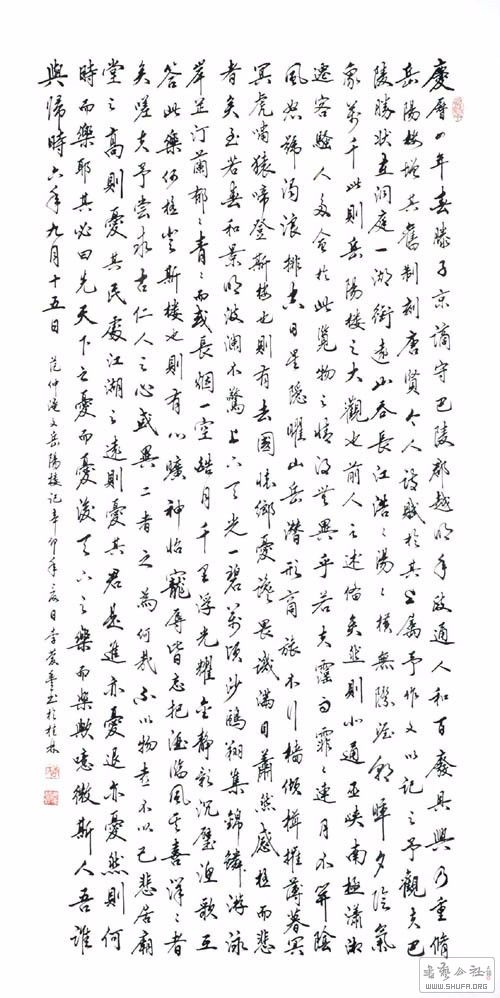 慶曆四年春滕子京謫守巴陵郡越明年政通人和百廢具興乃重脩
岳陽樓增其舊制刻唐賢今人詩賦於其上屬予作文以記之予觀夫巴
陵勝狀在洞庭一湖銜遠山吞長江浩浩湯湯橫無際涯朝暉夕陰氣
象萬千此則岳陽樓之大觀也前人之述備矣然則北通巫峽南極瀟湘
遷客騷人多會於此覽物之情得無異乎若夫霪雨霏霏連月不開陰
風怒號濁浪排空日星隱曜山岳潛形商旅不行檣傾楫摧薄暮冥
冥虎嘯猿啼登斯樓也則有去國懷鄉憂讒畏譏滿目蕭然感極而悲
者矣至若春和景明波瀾不驚上下天光一碧萬頃沙鷗翔集錦鱗游泳
岸芷汀蘭郁郁青青而或長烟一空皓月千里浮光耀金靜影沉璧漁歌互
答此樂何極登斯樓也則有心曠神怡寵辱皆忘把酒臨風其喜洋洋者
矣嗟夫予嘗求古仁人之心或異二者之為何哉不以物喜不以己悲居廟
堂之高則憂其民處江湖之遠則憂其君是進亦憂退亦憂然則何
時而樂耶其必曰先天下之憂而憂後天下之樂而樂歟噫微斯人吾誰
與歸時六年九月十五日
范仲淹文岳陽樓記辛卯年日李書於桂林
WWW.SHUFA.ORG